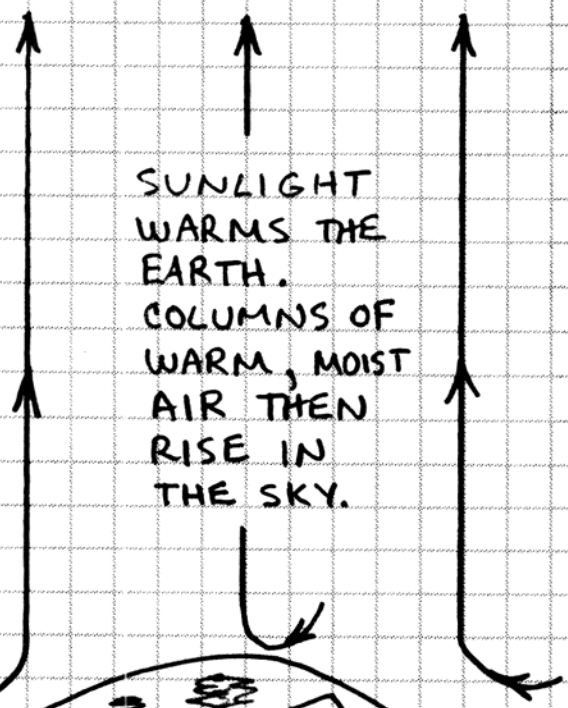 SUNLIGHT
WARMS THE
EARTH.
COLUMNS OF
WARM, MOIST
AIR THEN
RISE IN
THE SKY.